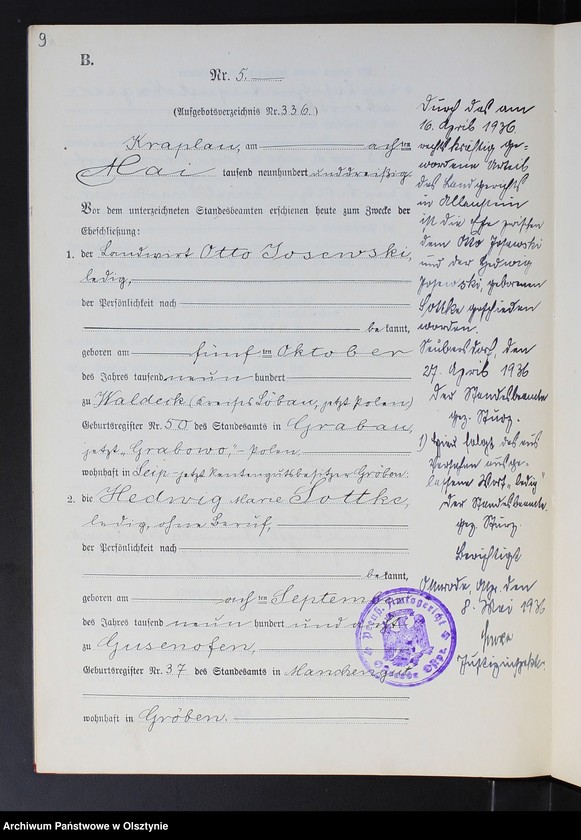 9
B.
Nr. 5.
(Aufgebotsverzeichnis Nr. 336.)
Kraplau, am achten
Mai tausend neunhundert unddreißig
Vor dem unterzeichneten Standesbeamten erschienen heute zum Zwecke der
Eheschließung:
1. der Landwirt Otto Josewski,
ledig,
der Persönlichkeit nach
bekannt,
geboren am fünften Oktober
des Jahres tausend neun hundert
zu Waldeck (Kreises Löbau, jetzt Polen)
Geburtsregister Nr. 50 des Standesamts in Grabau,
jetzt „Grabowo," - Polen,
wohnhaft in Seip - jetzt Rentengutsbesitzer Gröben.
2. die Hedwig Marie Sottke,
ledig, ohne Beruf,
der Persönlichkeit nach
bekannt,
geboren am achten Septem
des Jahres tausend neun hundert und acht
zu Gusenofen,
Geburtsregister Nr. 37 des Standesamts in Manchengut,
wohnhaft in Gröben.
Durch das am
16. April 1936
rechtskräftig ge-
wordene Urteil
des Landgerichts
in Allenstein
ist die Ehe zwischen
dem Otto Josewski
und der Hedwig
Josewski, geborenen
Sottke geschieden
worden.
Seubersdorf, den
27. April 1936
Der Standesbeamte
gez. Sturz.
1) Hier folgt das aus
Versehen ausge-
lassene Wort „ledig"
Der Standesbeamte.
gez. Sturz.
Berichtigt
Osterode, Opr. den
8. Mai 1936
Justizinspektor
Preuß. Amtsgericht
Osterode Ostpr.
Archiwum Państwowe w Olsztynie